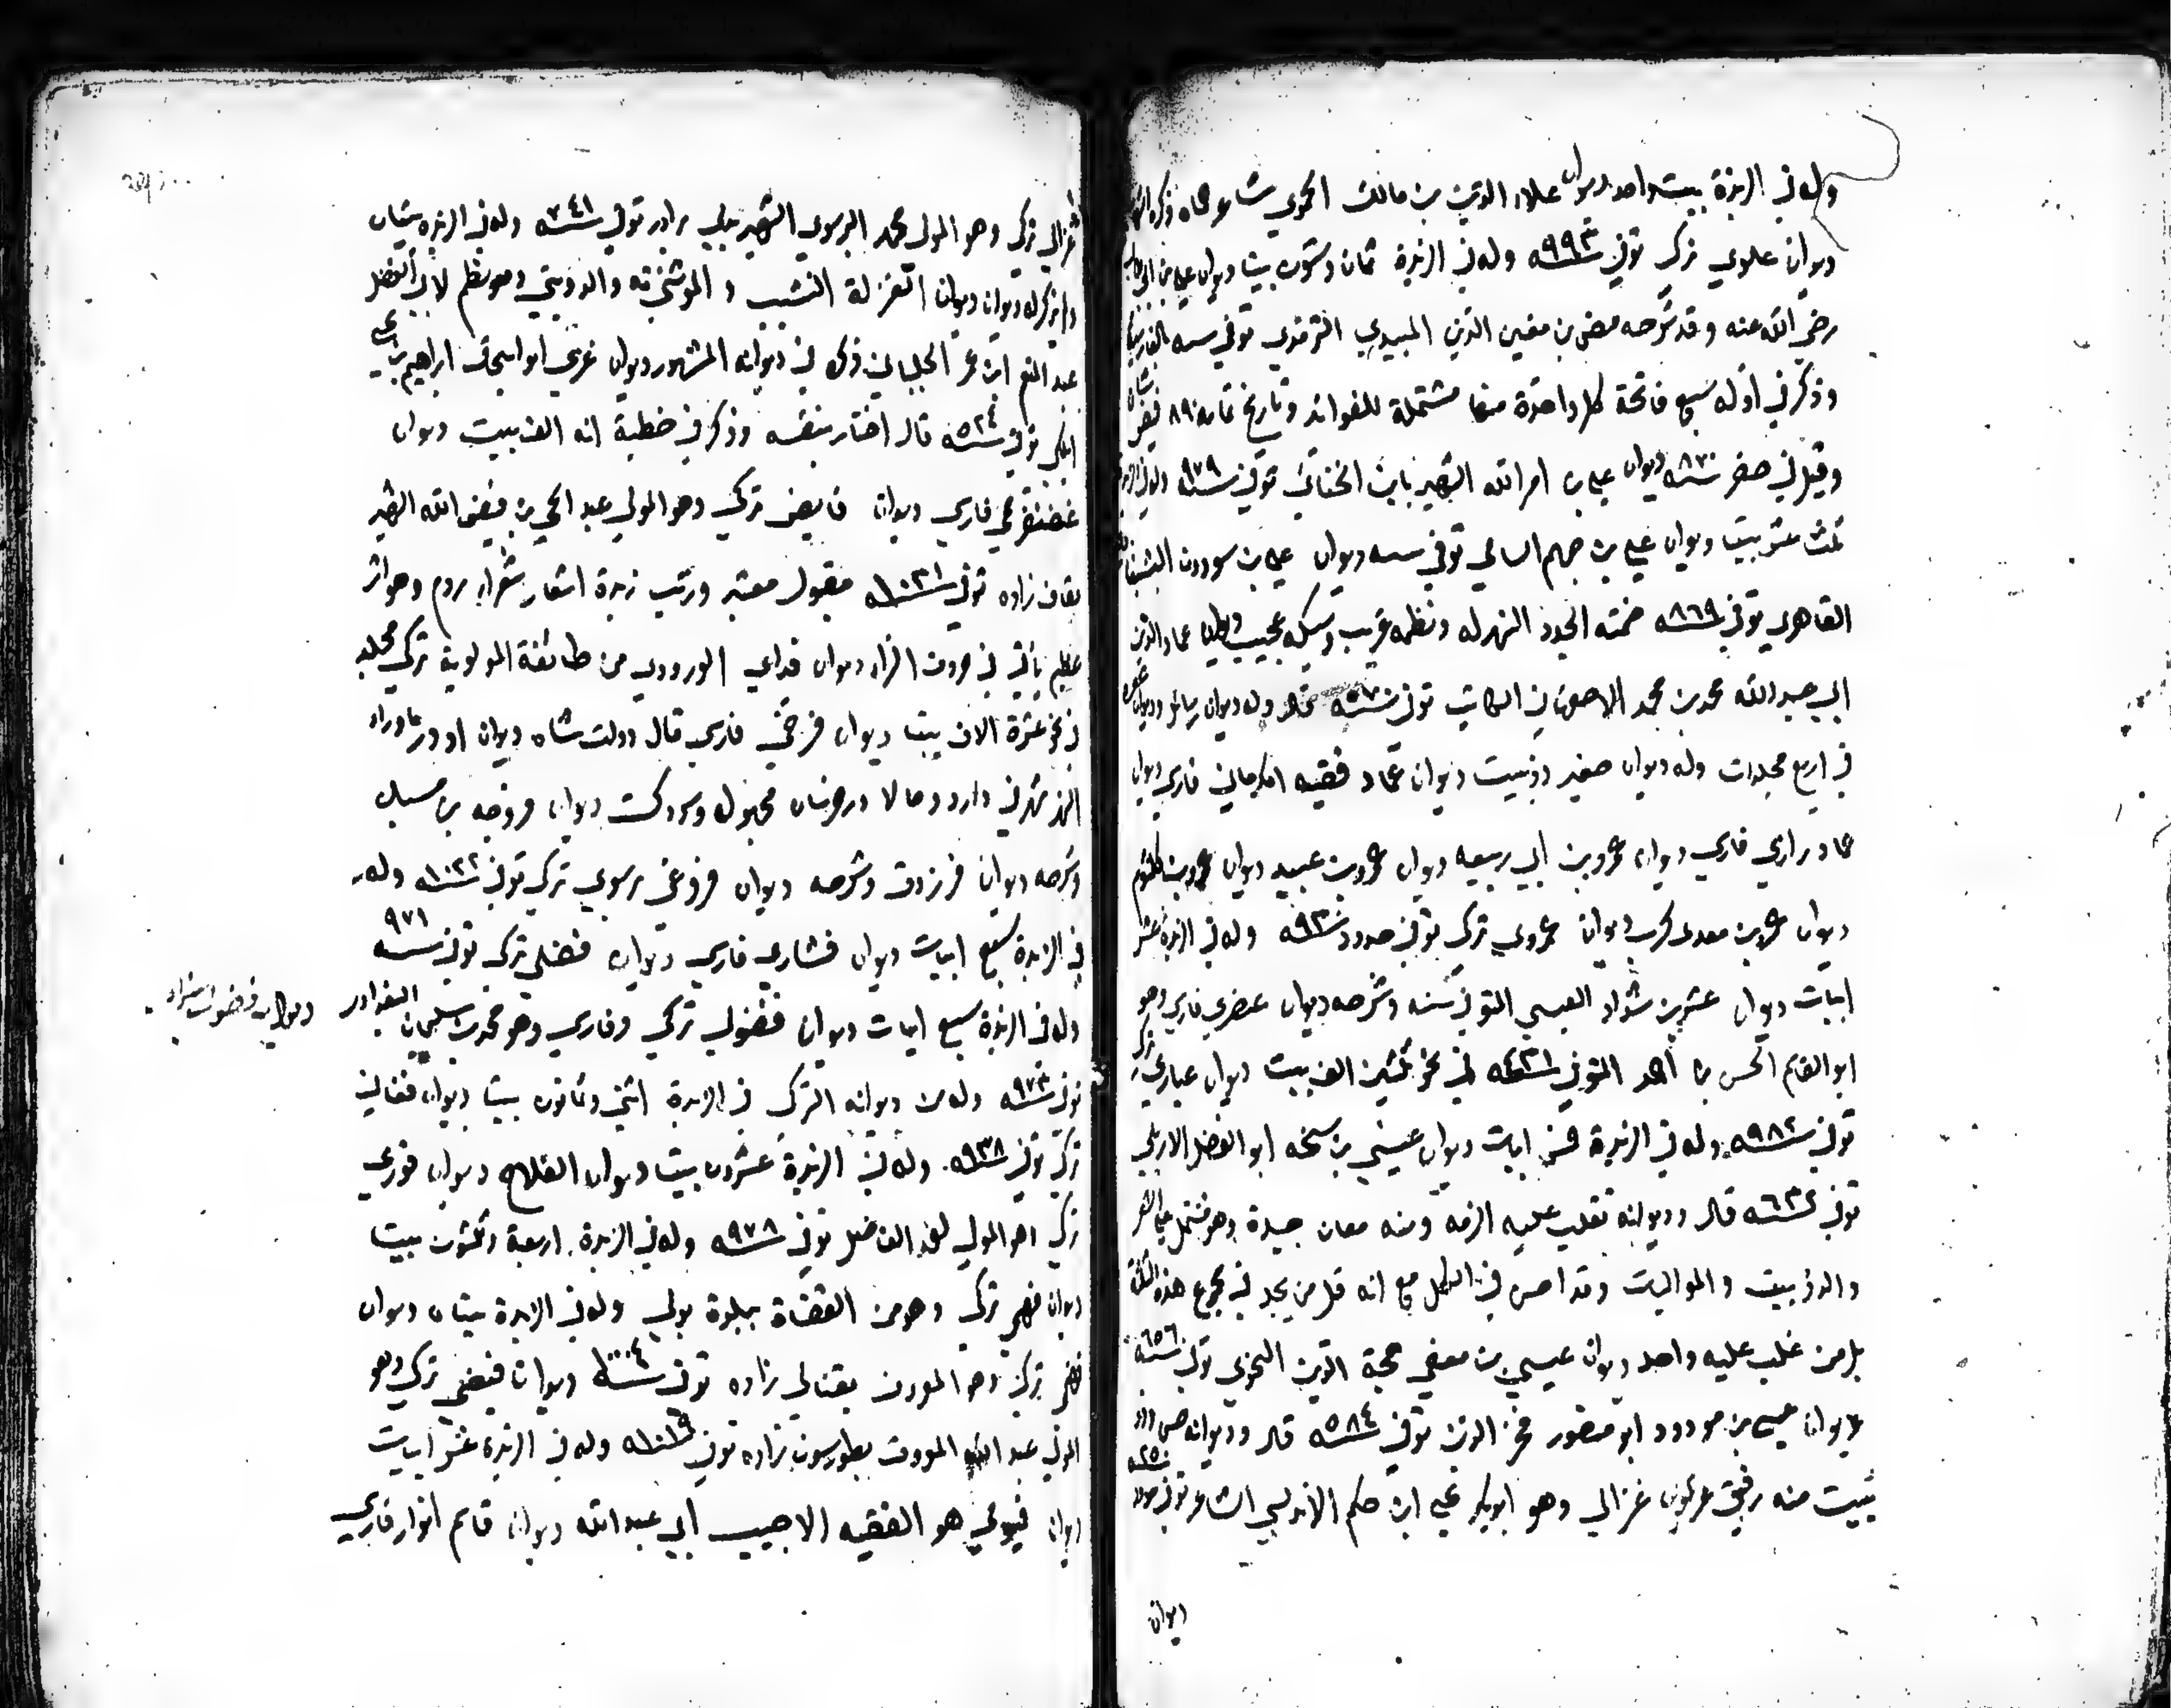 وله في الزبدة بيت واحد ديوان علاء الدين بن مالك الحموي شاعر حماه ذكره
ديوان علوي تركي توفي سنة ٩٩٣ وله في الزبدة ثمان وستون بيتا ديوان علي بن ابي
رضي الله عنه وقد شرحه بن معين الدين الميبدي توفي سنه بالفارسية
وذكر في اوله سبع فاتحة كل واحدة منها مشتملة للفوائد وتاريخ
وقيل في صفر سنة ٨٧٠ ديوان علي بن امر الله الشهير بابن الحنائي توفي سنة ٩٧٩ وله في
ثلث عشر بيتا ديوان علي بن جهم السامي توفي سنه ديوان علي بن سودون
القاهري توفي سنة ٨٦٩ ونظمه غريب وسبكه عجيب ديوان عماد الدين
ابي عبد الله محمد بن محمد الاصفهاني الكاتب توفي سنة وله ديوان رسائل وديوان
في اربع مجلدات وله ديوان صغير دوبيت ديوان عماد فقيه الكرماني فارسي ديوان
عماد رازي فارسي ديوان عمرو بن ابي ربيعه ديوان عمرو بن عبيد ديوان عمرو بن كلثوم
ديوان عمرو بن معدي كرب ديوان عمروي تركي توفي حدود سنة ٩٣٠ وله في الزبدة عشر
ابيات ديوان عنتر بن شداد العبسي المتوفي سنه وشرحه ديوان عنصري فارسي وهو
ابو القاسم الحسن بن احمد المتوفي سنة ٤٣١ في نحو ثلثين الف بيت ديوان عياري تركي
توفي سنة ٩٨٢ وله في الزبدة خمس ابيات ديوان عيسي بن سنجر ابو الفضل الاربلي
توفي سنة ٦٣٢ قال وديوانه تغلب عليه الرقه وفيه معان جيدة وهو مشتمل علي الشعر
والدوبيت والمواليات وقد احسن في الكل مع انه قل من يجيد في مجموع هذه الثلثة
بل من غلب عليه واحد ديوان عيسي بن معلي حجة الدين النحوي توفي سنة ٦٥٦
ديوان عيسي بن مودود ابو منصور فخر الدين توفي سنة ٥٨٤ قال وديوانه حسن
بيت منه رقيق ديوان غزالي وهو ابو بكر يحيي ابن حكم الاندلسي الشاعر توفي حدود سنة ٢٥٠
ديوان
غزالي تركي وهو المولي محمد البرسوي الشهير بدلي برادر توفي سنة ٧٤١ وله في الزبدة بيتان
ولم يذكر له ديوان ديوان الغزلة التشبيب والموشحة والدوبيتي وهو نظم لابي الفضل
عبد المنعم ابن عمر الجلياني ذكره في ديوانه المشهور ديوان غزي ابو اسحاق ابراهيم بن علي
الكلبي توفي سنة ٥٢٤ قال اختار بنفسه وذكر في خطبة انه الف بيت ديوان
غضنفر فارسي ديوان فايضي تركي وهو المولي عبد الحي بن فيض الله الشهير
بقاف زاده توفي سنة ١٠٣١ مقبول معتبر ورتب زبدة اشعار شعراء روم وهو اثر
عظيم يأتي في حروف الزاء ديوان فدايي من طائفة المولوية تركي مجلد
في نحو عشرة الاف بيتا ديوان فرخي فارسي قال دولت شاه ديوان او در ماوراء
النهر شهرتي دارد وحالا در خراسان مجهول ومتروكست ديوان فروخه بن مسيل
وشرحه ديوان فرزدق وشرحه ديوان فروغي برسوي تركي توفي سنة ١٠٢٢ وله
في الزبدة سبع ابيات ديوان فشاري فارسي ديوان فضلي تركي توفي سنة ٩٧١
وله في الزبدة سبع ابيات ديوان فضولي تركي وفارسي وهو محمد بن سليمان البغدادي
توفي سنة ٩٧٣ وله من ديوانه التركي في الزبدة اثني وثمانون بيتا ديوان فغاني
تركي توفي سنة ٩٣٨ وله في الزبدة عشرون بيتا ديوان الفلاح ديوان فوري
تركي احمد المولي الفاضل توفي سنة ٩٧٨ وله في الزبدة اربعة وثلثون بيت
ديوان فهمي تركي وهو من القضاة ببلدة بولي وله في الزبدة بيتان ديوان
فهمي تركي وهو المعروف بقنالي زاده توفي سنة ١٠٠٤ ديوان فيضي تركي وهو
المولي عبد الله المعروف بطورسون زاده توفي سنة ١٠١٩ وله في الزبدة عشر ابيات
ديوان فيومي هو الفقيه الاديب ابي عبد الله ديوان قاسم انوار فارسي